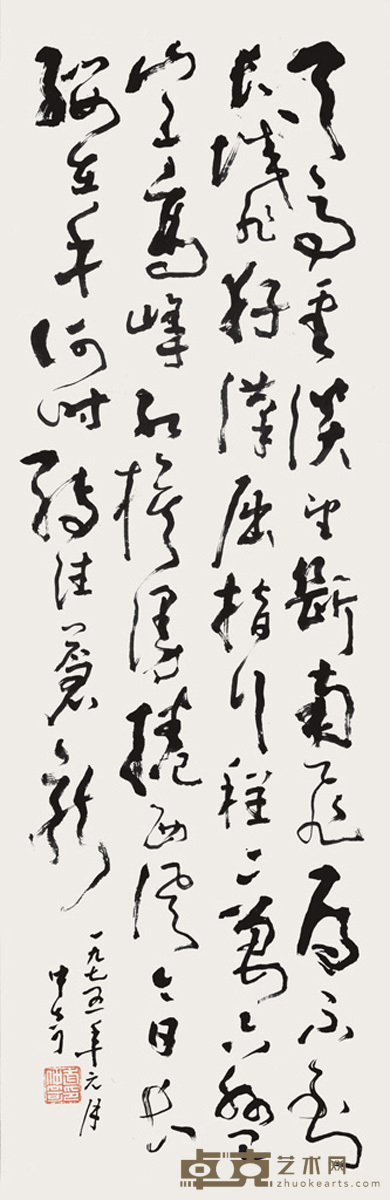 天高雲淡望斷南飛雁不到
長城非好漢屈指行程二萬六盤
山上高峰紅旗漫捲西風今日長
纓在手何時縛住蒼龍
一九七五年元月
卓克艺术网
zhuokearts.com